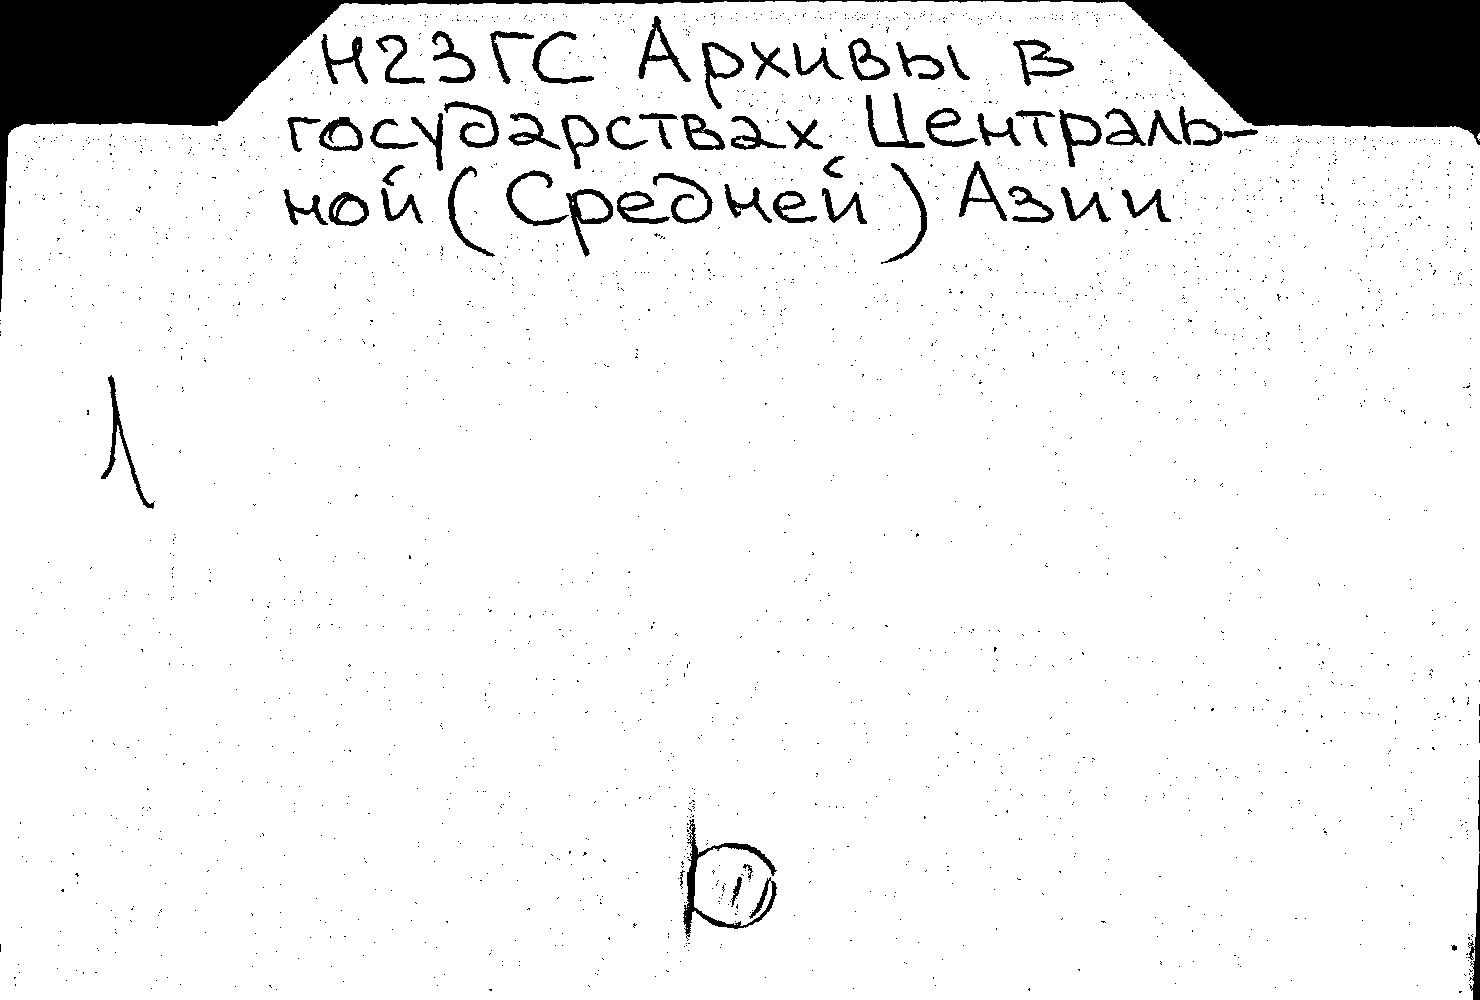 Н23ГС Архивы в
государствах Централь-
ной (Средней) Азии